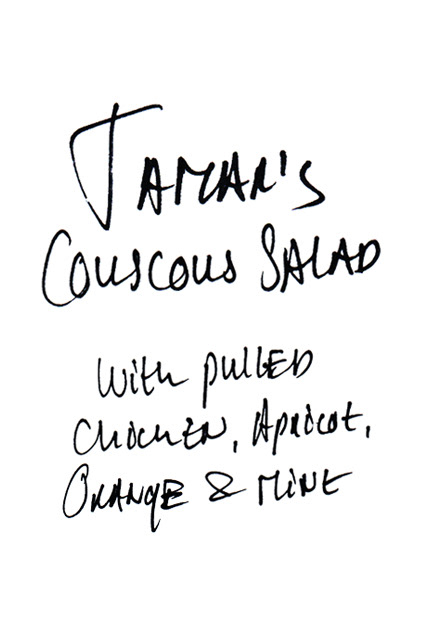 Tamar's
Couscous Salad
With pulled
chicken, Apricot,
Orange & Mint